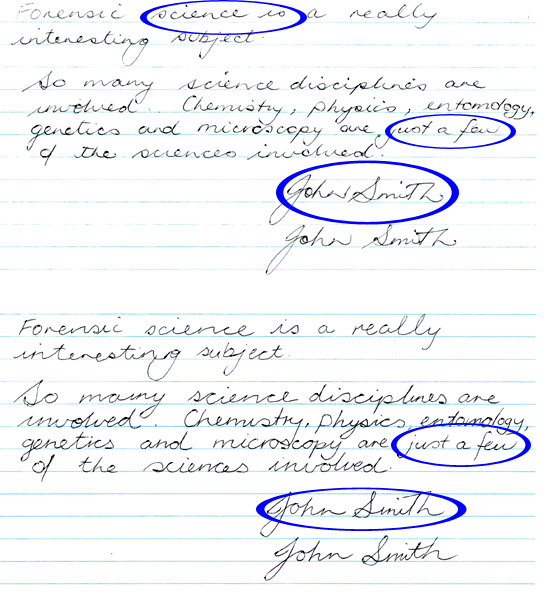 Forensic science is a really
interesting subject.
So many science disciplines are
involved. Chemistry, physics, entomology,
genetics and microscopy are just a few
of the sciences involved.
John Smith
John Smith
Forensic science is a really
interesting subject.
So many science disciplines are
involved. Chemistry, physics, entomology,
genetics and microscopy are just a few
of the sciences involved.
John Smith
John Smith